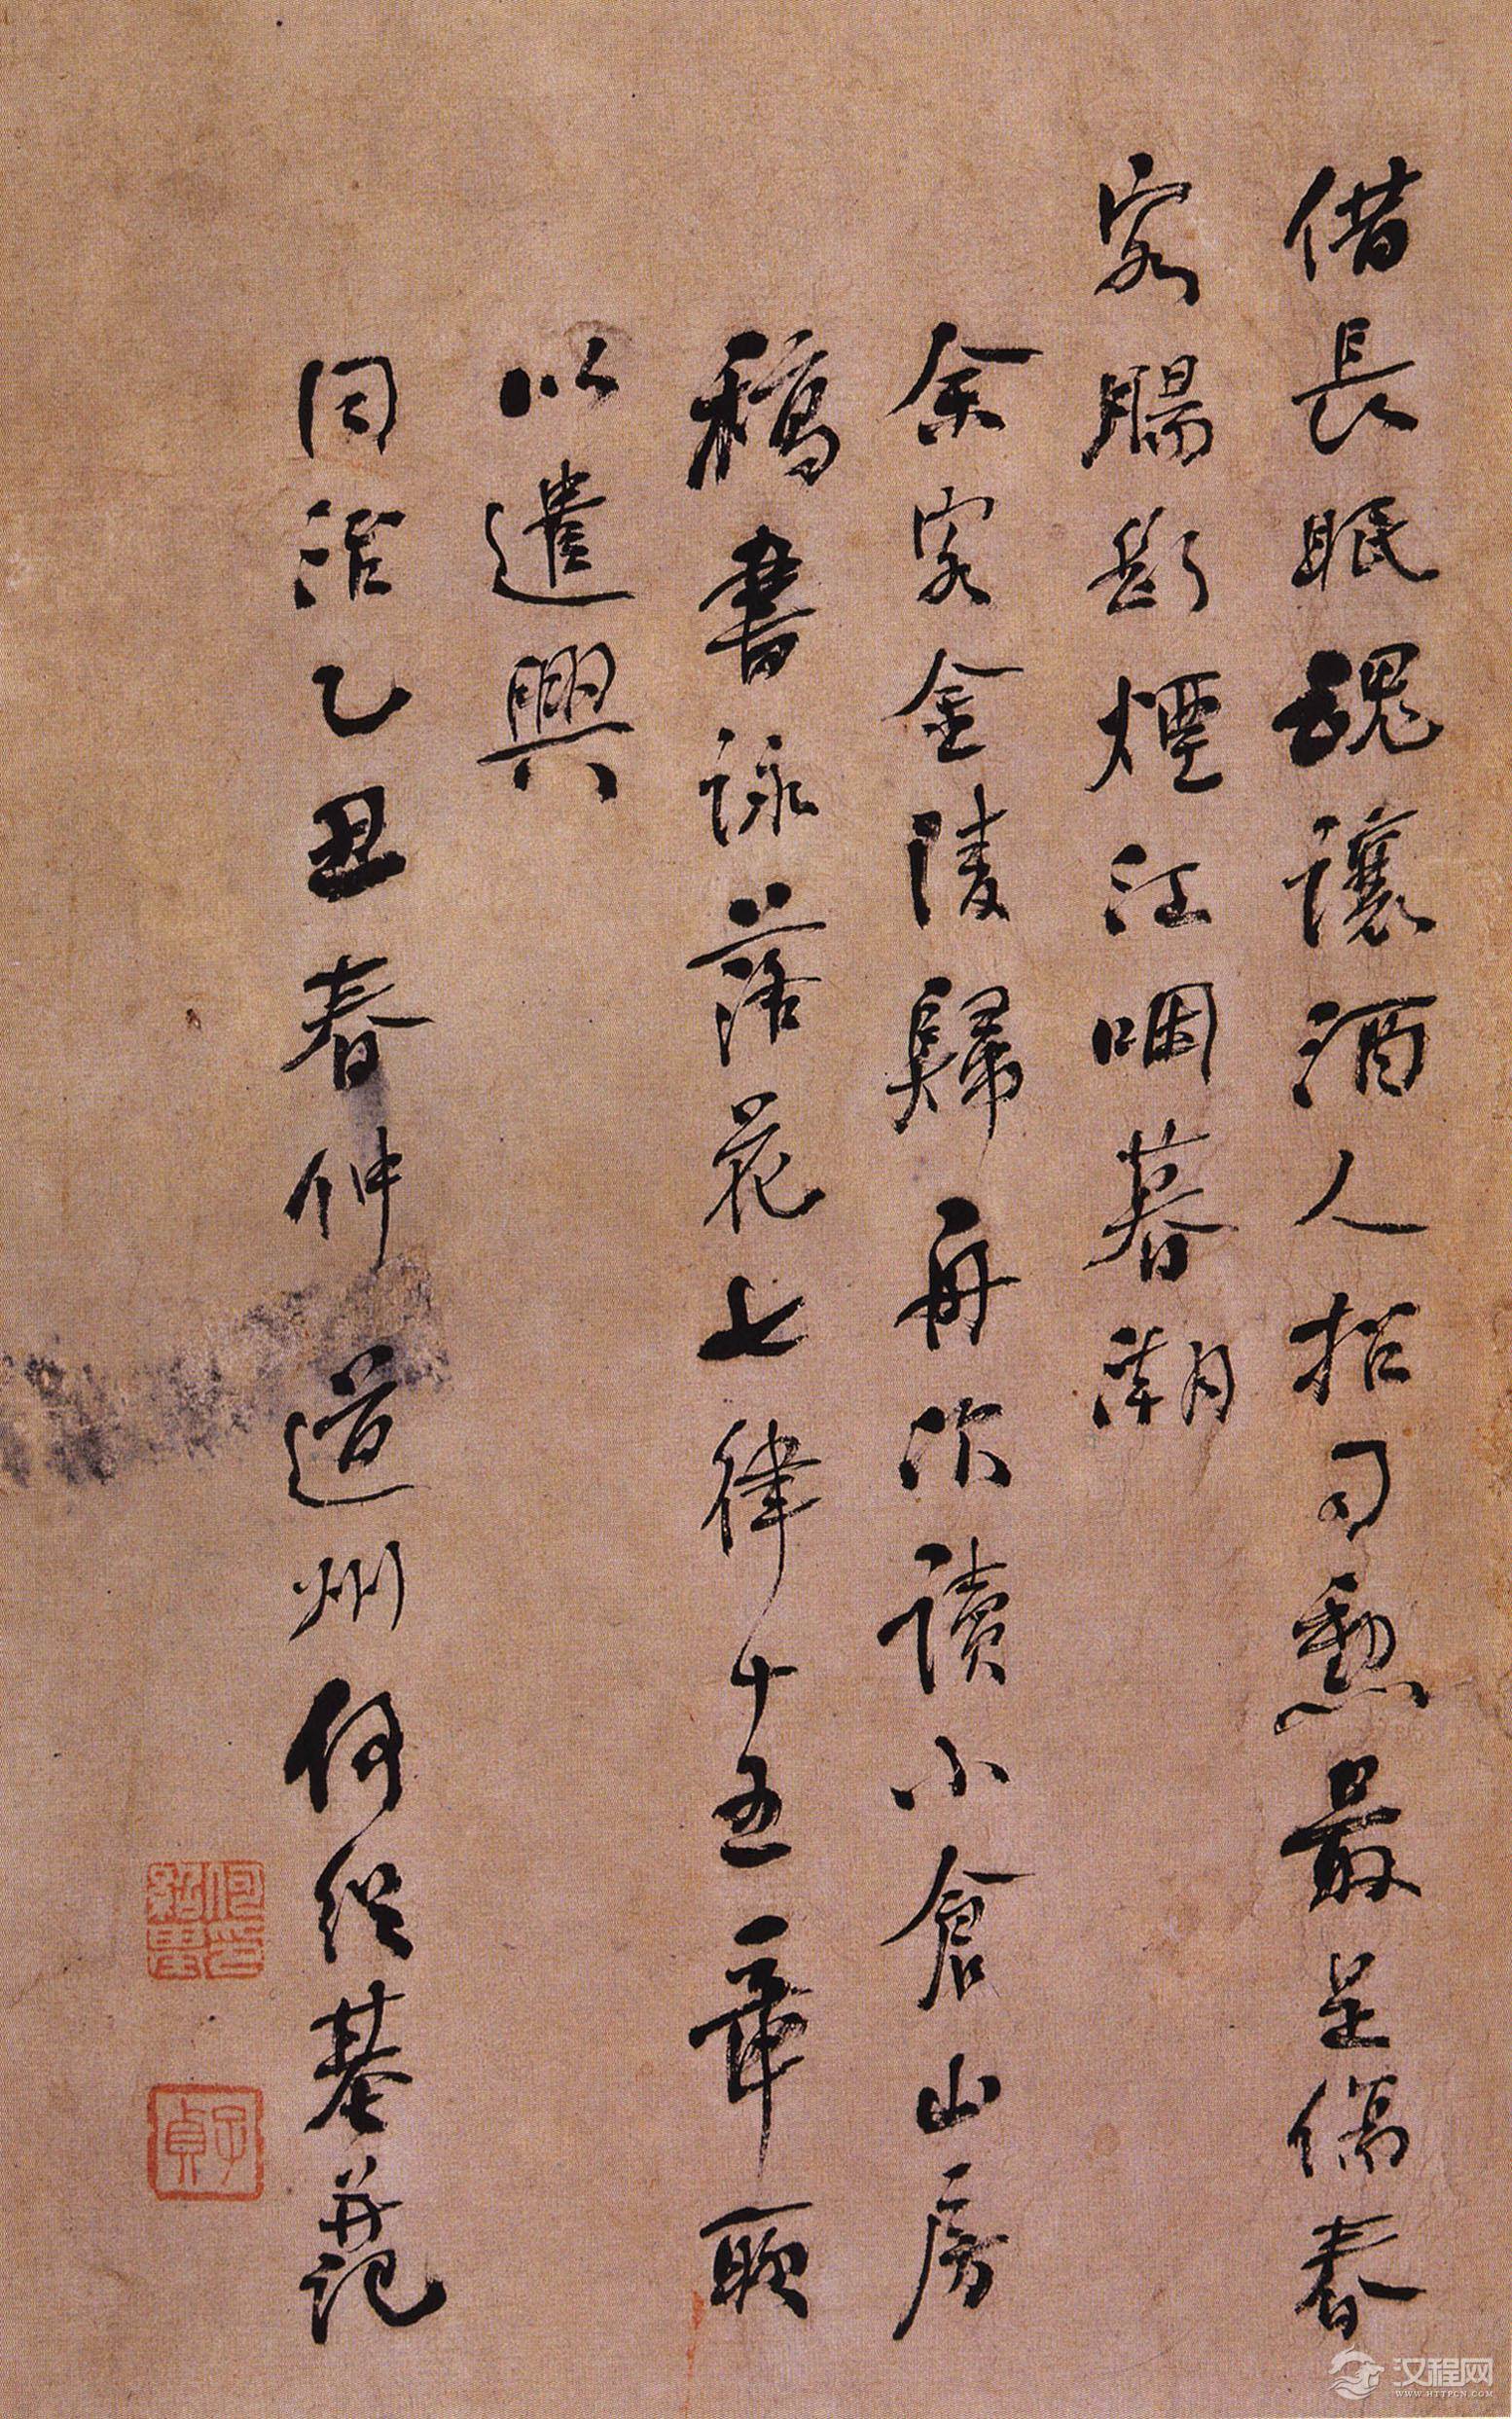 借長眠魂讓酒人招司勳最是傷春
客腸斷煙江咽暮潮
余客金陵歸舟次讀小倉山房
稿書詠落花七律十五章聊
以遣興
同治乙丑春仲道州何紹基并記
何紹基印
子貞
汉程网
WWW.HTTPCN.COM